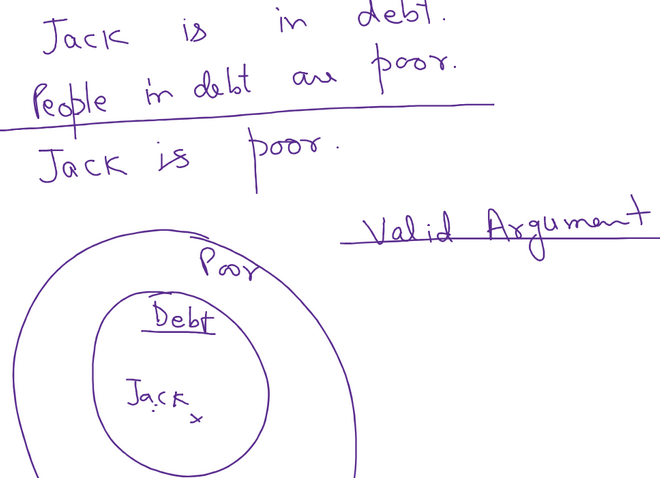 Jack is in debt.
People in debt are poor.
Jack is poor.
Valid Argument
Poor
Debt
Jack
x